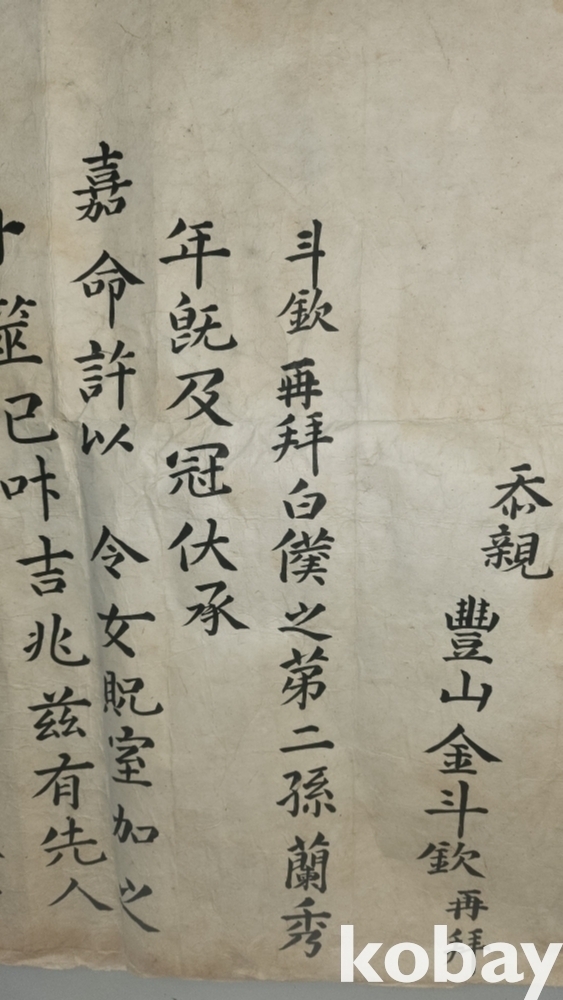 忝親 豐山金斗欽 再拜
斗欽 再拜白僕之苐二孫蘭秀
年旣及冠伏承
嘉命許以 令女貺室加之
卜筮已叶吉兆玆有先人
kobay